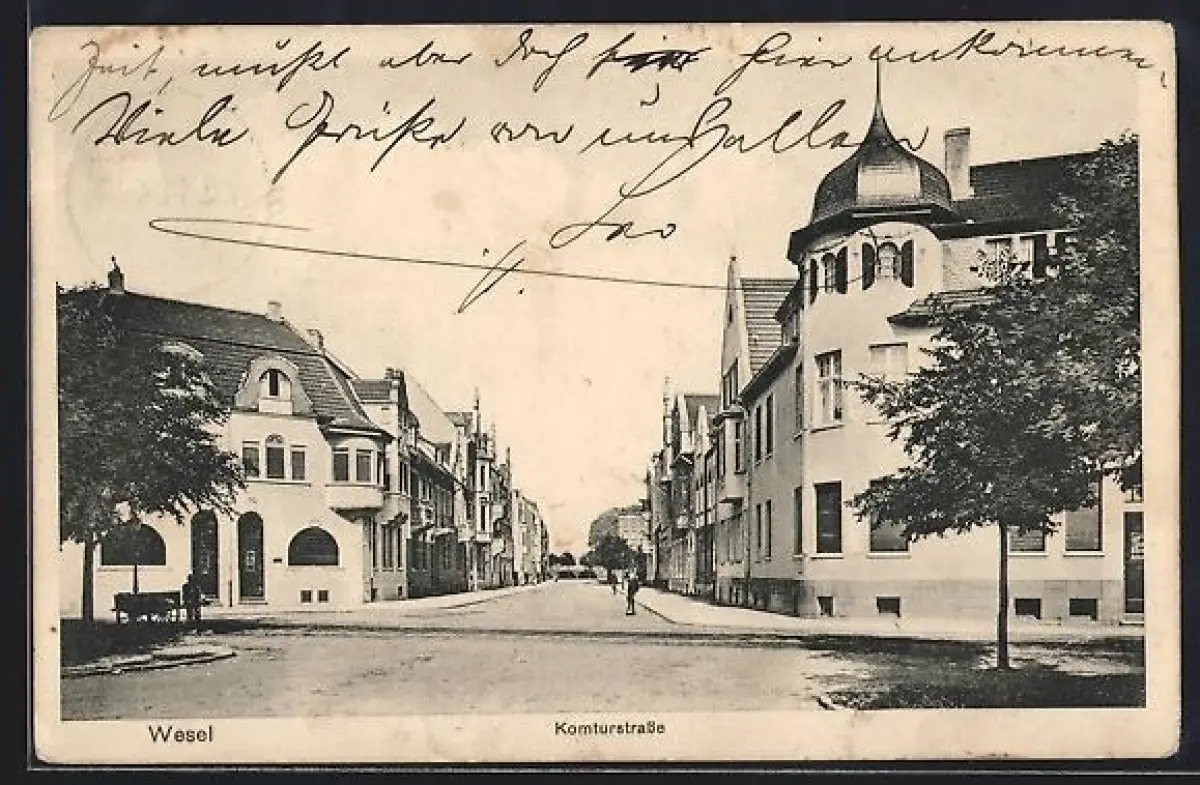 Zeit, mußt aber doch hier ankommen
Viele Grüße von uns allen
Leo
Wesel
Komturstraße